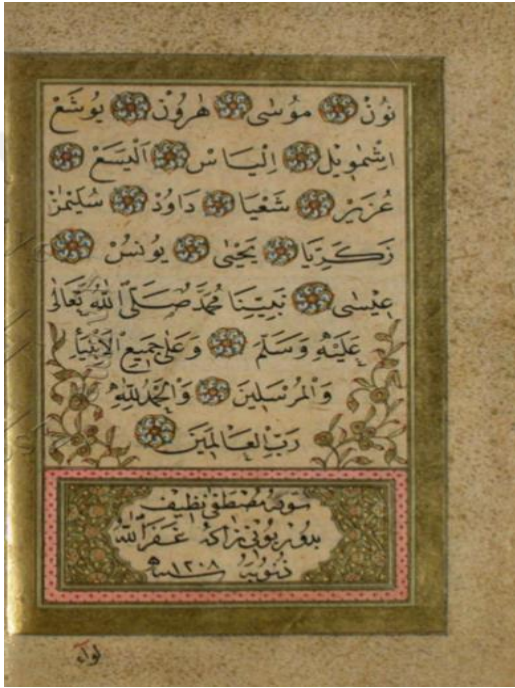 نُونْ مُوسٰى هٰرُونْ يُوشَعْ
اِشْمَوِيلْ اِلْيَاسْ اَلْيَسَعْ
عُزَيْرْ شَعْيَا دَاوُدْ سُلَيْمٰنْ
زَكَرِيَّا يَحْيٰى يُونُسْ
عِيسٰى نَبِيِّنَا مُحَمَّدْ صَلَّى اللّٰهُ تَعَالٰى
عَلَيْهِ وَسَلَّمَ وَعَلٰى جَمِيعِ الْاَنْبِيَاۤءِ
وَالْمُرْسَلِينَ وَالْحَمْدُ لِلّٰهِ
رَبِّ الْعَالَمِينَ
مصطفى نظيف
غَفَرَ اللّٰهُ
ذُنُوبَهُ سنه ١٢٠٨